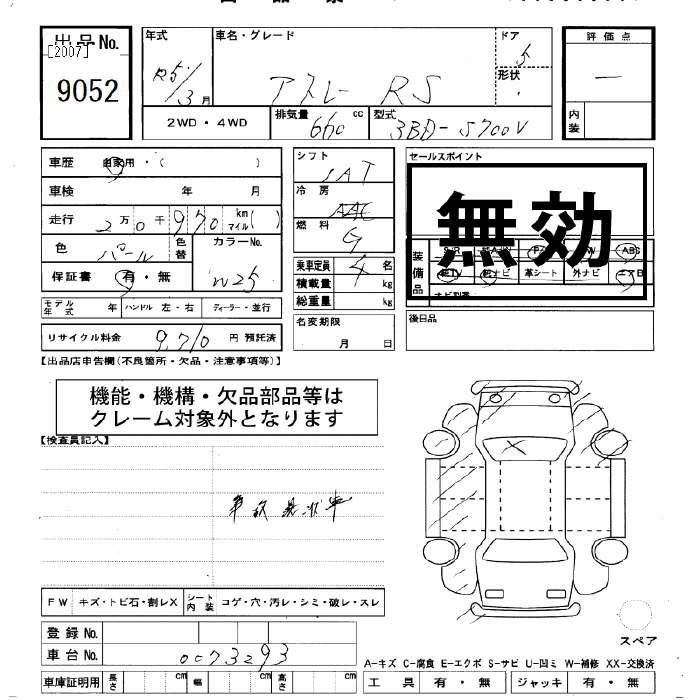 出品No.
[2007]
9052
年式
R5/3月
車名・グレード
アトレー RS
ドア
5
形状
評価点
内装
2WD・4WD
排気量
660
cc
型式
3BD-S700V
車歴 自家用・( )
車検 年 月
走行 2万0千970 km マイル( )
色 パール
色替
カラーNo.
W25
保証書 有・無
モデル年式 年 ハンドル 左・右 ディーラー・並行
リサイクル料金 9,710 円 預託済
シフト
IAT
冷房
AAC
燃料
G
乗車定員 4 名
積載量 kg
総重量 kg
名変期限
月 日
セールスポイント
無効
装備品
ABS
革シート 外ナビ エアB
後日品
【出品店申告欄(不良箇所・欠品・注意事項等)】
機能・機構・欠品部品等は
クレーム対象外となります
【検査員記入】
事故現状車
FW キズ・トビ石・割レX
シート内装 コゲ・穴・汚レ・シミ・破レ・スレ
登録No.
車台No. 0073293
車庫証明用 長さ cm 幅 cm 高さ cm
スペア
A-キズ C-腐食 E-エクボ S-サビ U-凹ミ W-補修 XX-交換済
工具 有・無 ジャッキ 有・無